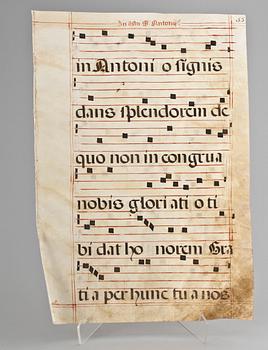 in Antoni o signis
dans splendorem de
quo non in congrua
nobis glori ati o ti
bi dat ho norem Gra
ti a per hunc tu a nos